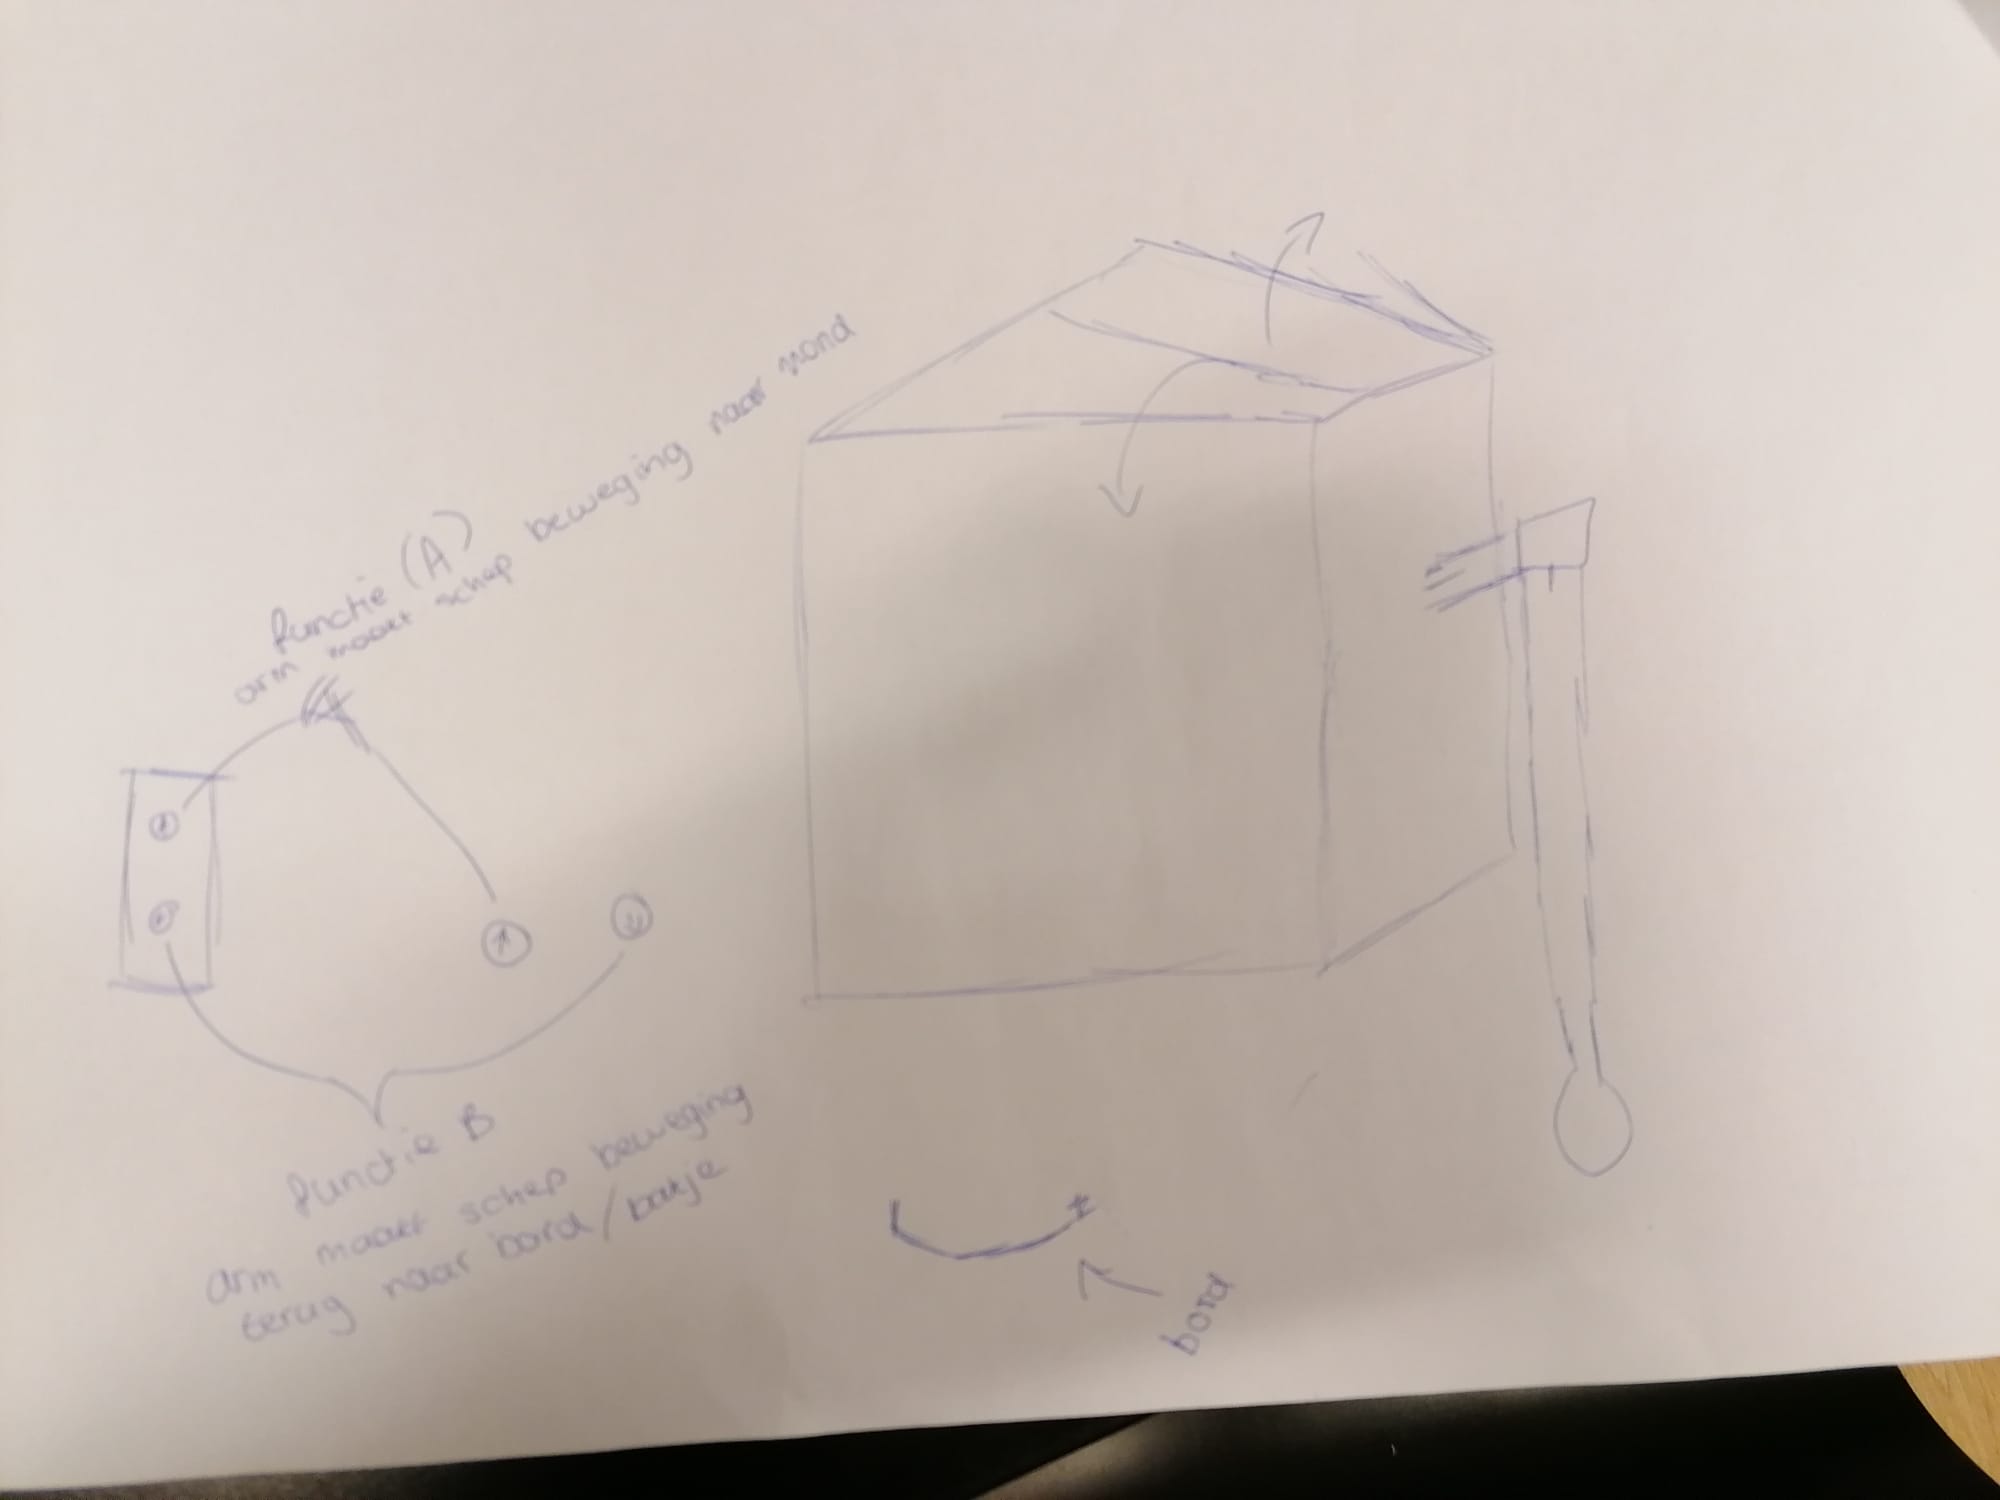 functie (A)
arm maakt schep beweging naar mond
functie B
arm maakt schep beweging
terug naar bord/bakje
bord